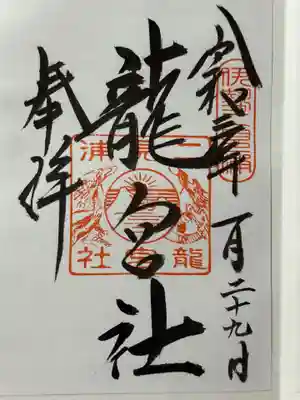 令和三年一月二十九日
龍宮社
二見浦
龍宮社
奉拝